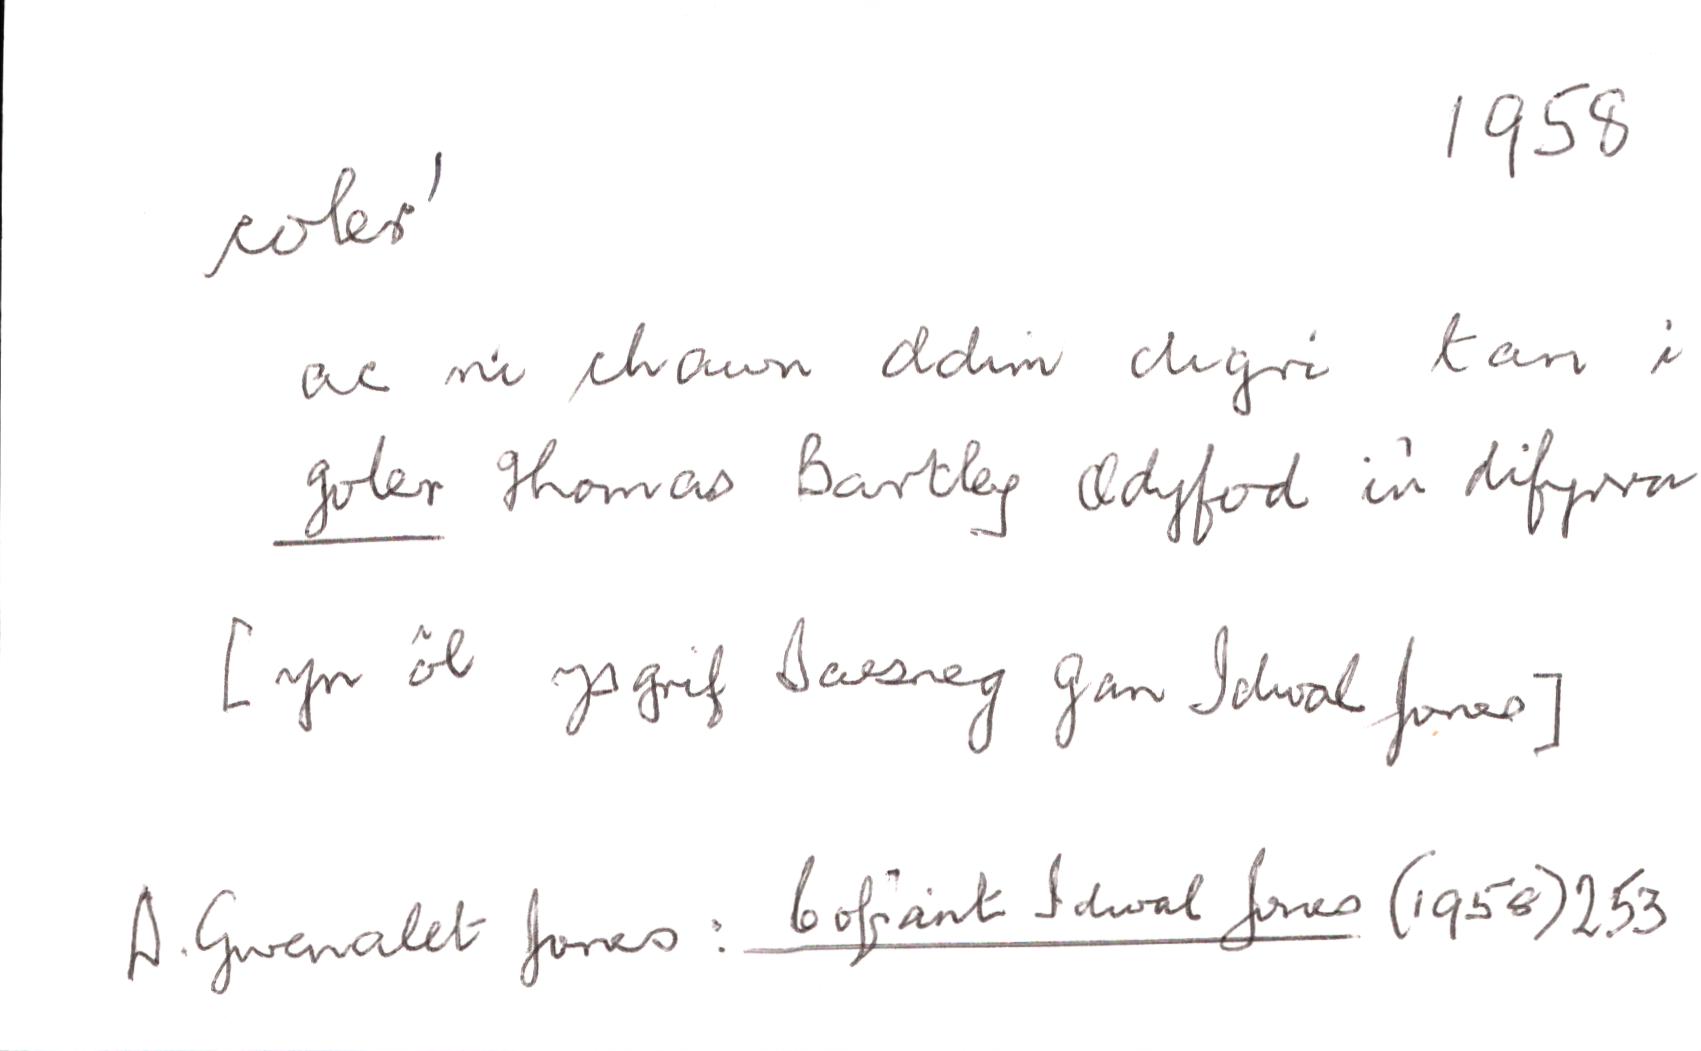 1958
coler¹
ac ni chawn ddim digri tan i
goler Thomas Bartley ddyfod i'n difyrru
[yn ôl ysgrif Saesneg gan Idwal Jones]
D. Gwenallt Jones: Cofiant Idwal Jones (1958) 253